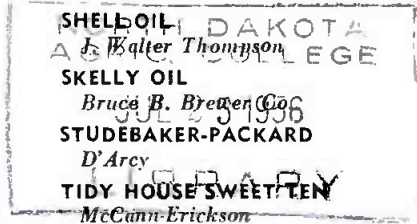 SHELL OIL
J. Walter Thompson
SKELLY OIL
Bruce B. Brewer Co.
STUDEBAKER-PACKARD
D'Arcy
TIDY HOUSE SWEET TEN
McCann-Erickson
NORTH DAKOTA
AGRIC. COLLEGE
JUL 25 1956
LIBRARY